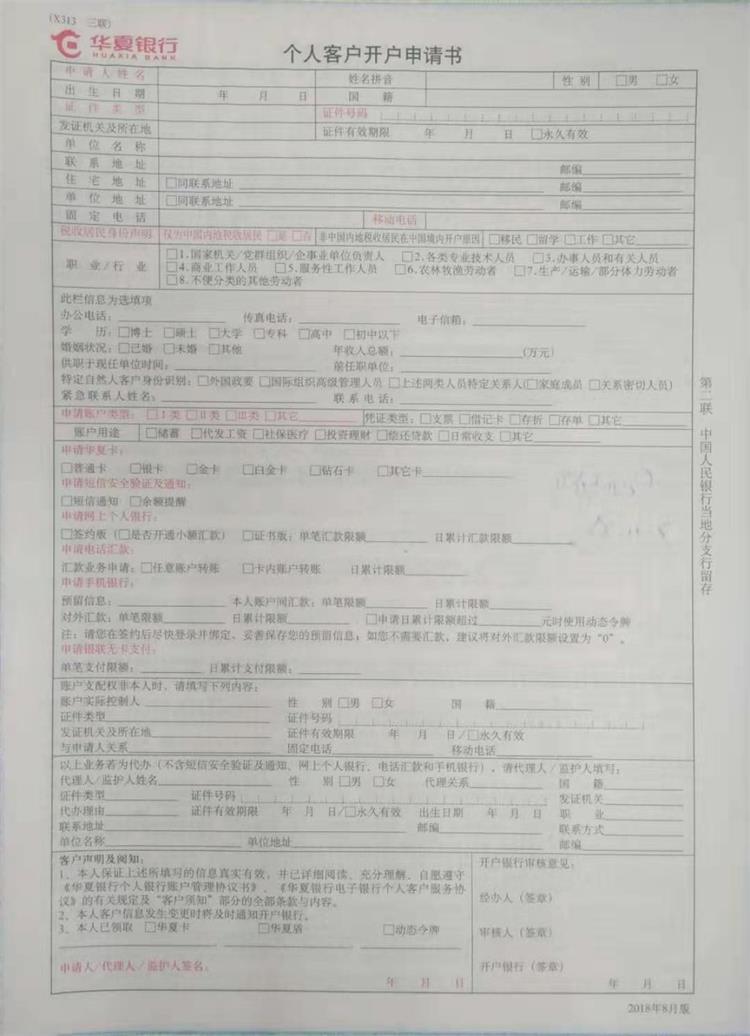 (X313 三联)
华夏银行
HUAXIA BANK
个人客户开户申请书
申请人姓名 姓名拼音 性别 □男 □女
出生日期 年 月 日 国籍
证件类型 证件号码
发证机关及所在地 证件有效期限 年 月 日 □永久有效
单位名称
联系地址 邮编
住宅地址 □同联系地址 邮编
单位地址 □同联系地址 邮编
固定电话 移动电话
税收居民身份声明 仅为中国内地税收居民 □是 □否 非中国内地税收居民在中国境内开户原因 □移民 □留学 □工作 □其它
职业/行业
□1.国家机关/党群组织/企事业单位负责人 □2.各类专业技术人员 □3.办事人员和有关人员
□4.商业工作人员 □5.服务性工作人员 □6.农林牧渔劳动者 □7.生产/运输/部分体力劳动者
□8.不便分类的其他劳动者
此栏信息为选填项
办公电话: 传真电话: 电子信箱:
学历: □博士 □硕士 □大学 □专科 □高中 □初中以下
婚姻状况: □已婚 □未婚 □其他 年收入总额: (万元)
供职于现任单位时间: 前任职单位:
特定自然人客户身份识别: □外国政要 □国际组织高级管理人员 □上述两类人员特定关系人(□家庭成员 □关系密切人员)
紧急联系人姓名: 联系电话:
申请账户类型: □I类 □II类 □III类 □其它 凭证类型: □支票 □借记卡 □存折 □存单 □其它
账户用途 □储蓄 □代发工资 □社保医疗 □投资理财 □偿还贷款 □日常收支 □其它
申请华夏卡:
□普通卡 □银卡 □金卡 □白金卡 □钻石卡 □其它卡
申请短信安全验证及通知:
□短信通知 □余额提醒
申请网上个人银行:
□签约版(□是否开通小额汇款) □证书版: 单笔汇款限额 日累计汇款限额
申请电话汇款:
汇款业务申请: □任意账户转账 □卡内账户转账 日累计限额
申请手机银行:
预留信息: 本人账户间汇款: 单笔限额 日累计限额
对外汇款: 单笔限额 日累计限额 □申请日累计限额超过 元时使用动态令牌
注: 请您在签约后尽快登录并绑定、妥善保存您的预留信息; 如您不需要汇款, 建议将对外汇款限额设置为“0”。
申请银联无卡支付:
单笔支付限额: 日累计支付限额:
账户支配权非本人时, 请填写下列内容:
账户实际控制人 性别 □男 □女 国籍
证件类型 证件号码
发证机关及所在地 证件有效期限 年 月 日/□永久有效
与申请人关系 固定电话 移动电话
以上业务若为代办(不含短信安全验证及通知、网上个人银行、电话汇款和手机银行), 请代理人/监护人填写:
代理人/监护人姓名 性别 □男 □女 代理关系 国籍
证件类型 证件号码 发证机关
代办理由 证件有效期限 年 月 日/□永久有效 出生日期 年 月 日 职业
联系地址 邮编 联系方式
单位名称 单位地址 邮编
客户声明及阅知:
1、本人保证上述所填写的信息真实有效, 并已详细阅读、充分理解、自愿遵守
《华夏银行个人银行账户管理协议书》、《华夏银行电子银行个人客户服务协
议》的有关规定及“客户须知”部分的全部条款与内容。
2、本人客户信息发生变更时将及时通知开户银行。
3、本人已领取 □华夏卡 □华夏盾 □动态令牌
申请人/代理人/监护人签名:
年 月 日
开户银行审核意见:
经办人(签章)
审核人(签章)
开户银行(签章)
年 月 日
第二联 中国人民银行当地分支行留存
2018年8月版